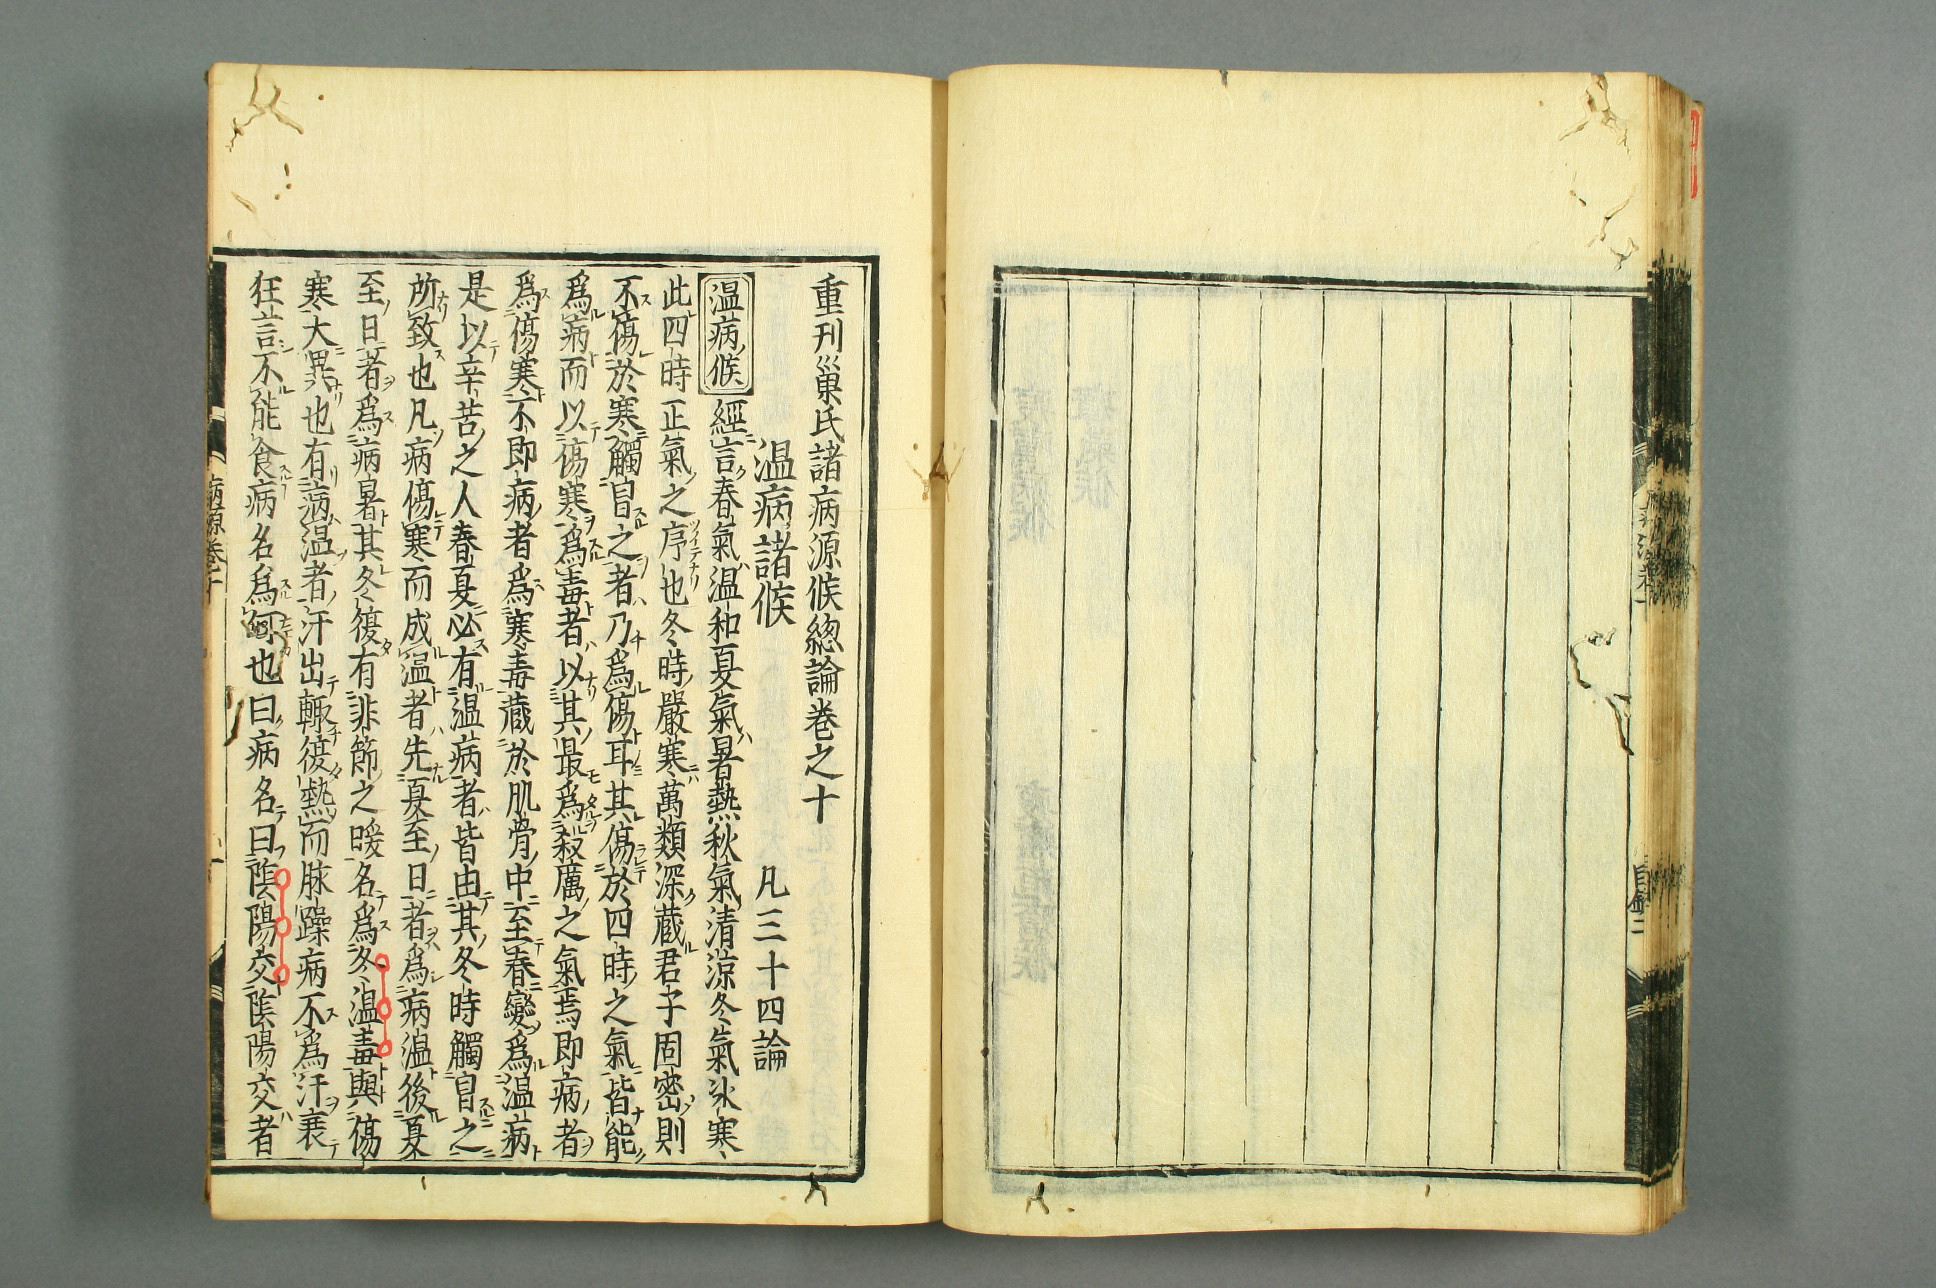 重刊巢氏諸病源候總論卷之十
溫病諸候　凡三十四論
溫病候　經言春氣溫和夏氣暑熱秋氣清涼冬氣冰寒
此四時正氣之序也冬時嚴寒萬類深藏君子固密則
不傷於寒觸冒之者乃爲傷耳其傷於四時之氣皆能
爲病而以傷寒爲毒者以其最爲殺厲之氣焉即病者
爲傷寒不即病者爲寒毒藏於肌骨中至春變爲溫病
是以辛苦之人春夏必有溫病者皆由其冬時觸冒之
所致也凡病傷寒而成溫者先夏至日者爲病溫後夏
至日者爲病暑其冬復有非節之暖名爲冬溫毒與傷
寒大異也有病溫者汗出輒復熱而脉躁病不爲汗衰
狂言不能食病名爲何也曰病名曰陰陽交陰陽交者
病源卷十
目錄二